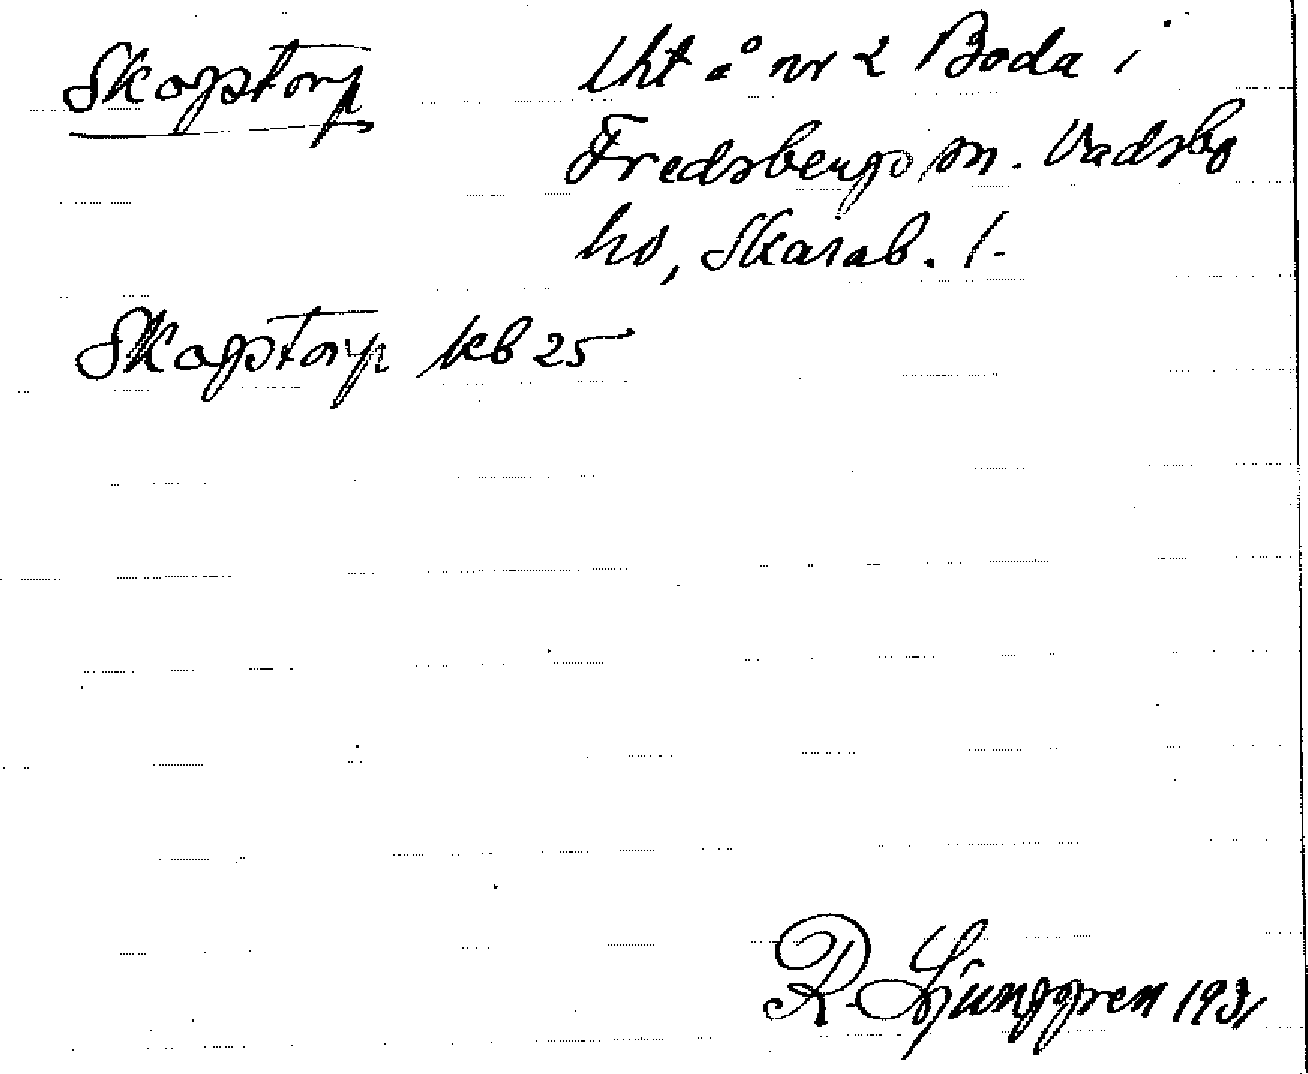 Skogstorp
Lht å nr 2 Boda i
Fredsbergs sn. Vadsbo
hd, Skarab. l.
Skogstorp kb 25
R. Ljunggren 1931